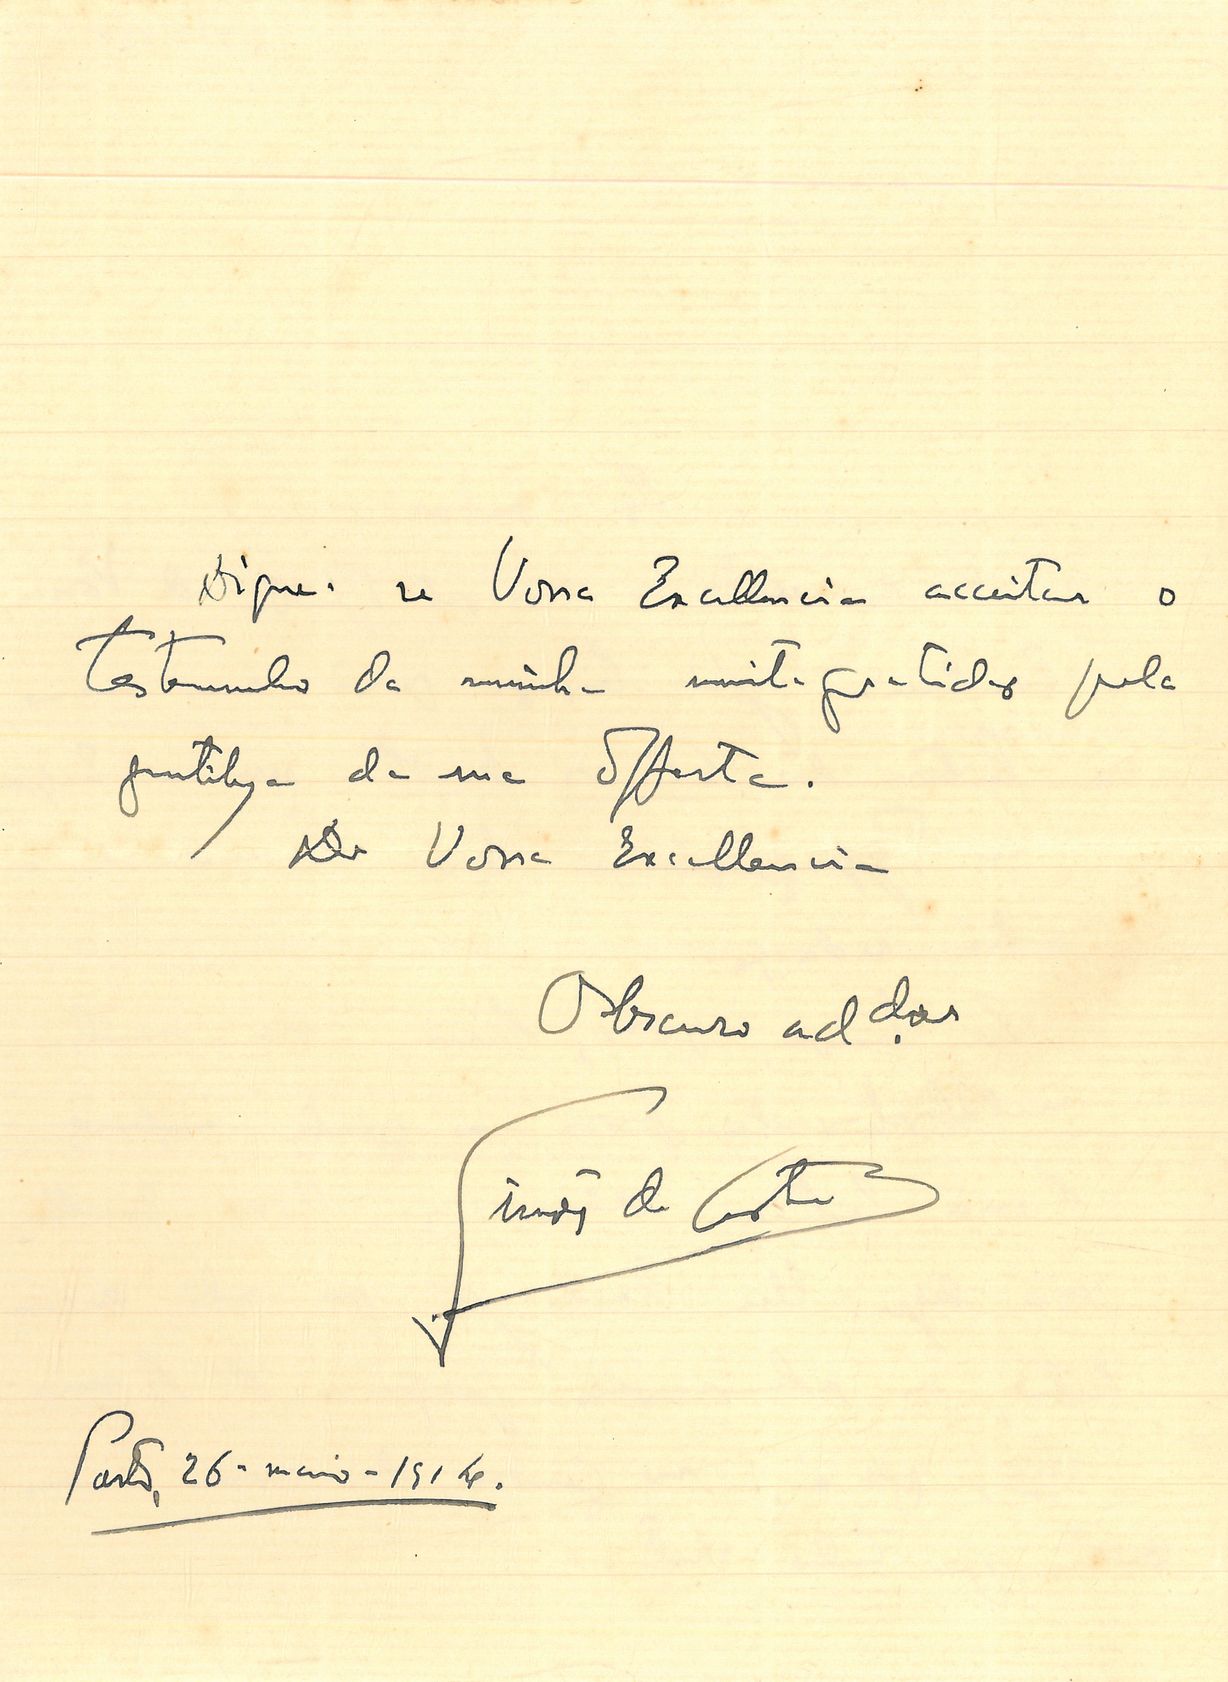 Digne-se Vossa Excellencia acceitar o
testemunho da minha muita gratidão pela
gentileza da sua Offerta.
De Vossa Excellencia
Obscuro add.or
Simões de Castro
Porto, 26-maio-1914.